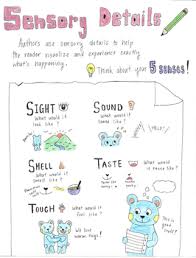 Sensory Details
Authors use sensory details to help
the reader visualize and experience exactly
what's happening.
Think about your 5 senses!
SIGHT
What would it
look like?
SOUND
What would it
sound like?
HELLO!
SMELL
What would it
smell like?
TASTE
What would it
taste like?
This is
good!
TOUCH
What would it
feel like?
We love
warm hugs!